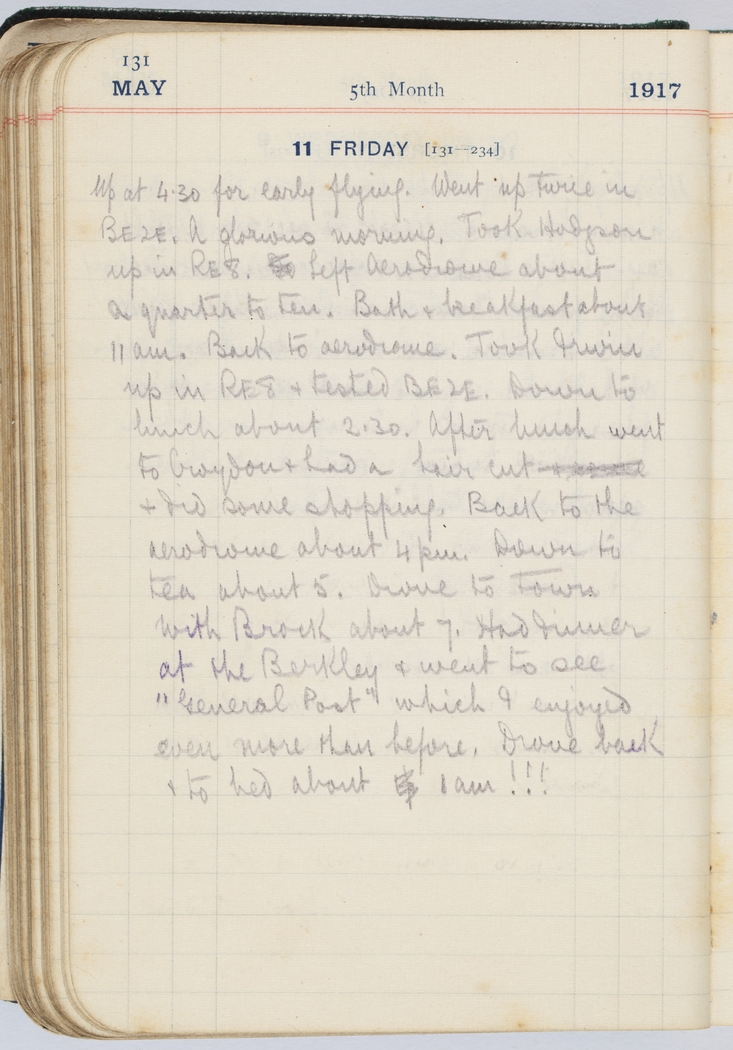 131
MAY 5th Month 1917
11 FRIDAY [131—234]
Up at 4.30 for early flying. Went up twice in
BE2E. A glorious morning. Took Hodgson
up in RE8. Left Aerodrome about
a quarter to ten. Bath + breakfast about
11 am. Back to aerodrome. Took Irwin
up in RE8 + tested BE2E. Down to
lunch about 2.30. After lunch went
to Croydon + had a hair cut
+ did some shopping. Back to the
aerodrome about 4 pm. Down to
tea about 5. Drove to Town
with Brock about 7. Had dinner
at the Berkley + went to see
"General Post" which I enjoyed
even more than before. Drove back
+ to bed about 1 am !!!